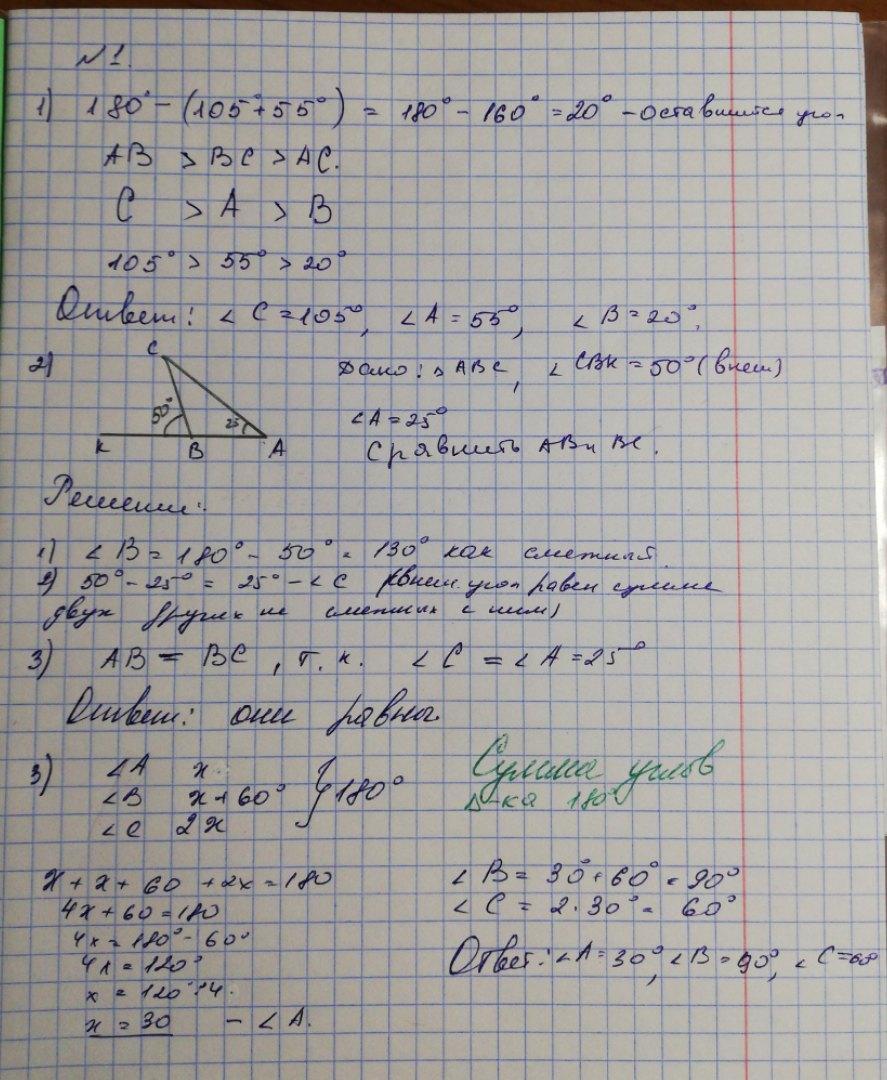 №1.
1) 180° - (105° + 55°) = 180° - 160° = 20° - оставшийся угол
AB > BC > AC.
C > A > B
105° > 55° > 20°
Ответ: ∠C = 105°, ∠A = 55°, ∠B = 20°.
2) C 50° 25 K B A
Дано: △ABC, ∠CBK = 50° (внеш)
∠A = 25°
Сравнить AB и BC.
Решение:
1) ∠B = 180° - 50° = 130° как смежный.
2) 50° - 25° = 25° - ∠C (внеш. угол равен сумме
двух других не смежных с ним)
3) AB = BC, т.к. ∠C = ∠A = 25°
Ответ: они равны.
3) ∠A x
∠B x + 60° } 180°
∠C 2x
Сумма углов
△-ка 180°
x + x + 60 + 2x = 180
4x + 60 = 180
4x = 180° - 60°
4x = 120°
x = 120° : 4.
x = 30 - ∠A.
∠B = 30° + 60° = 90°
∠C = 2 · 30° = 60°
Ответ: ∠A = 30°, ∠B = 90°, ∠C = 60°